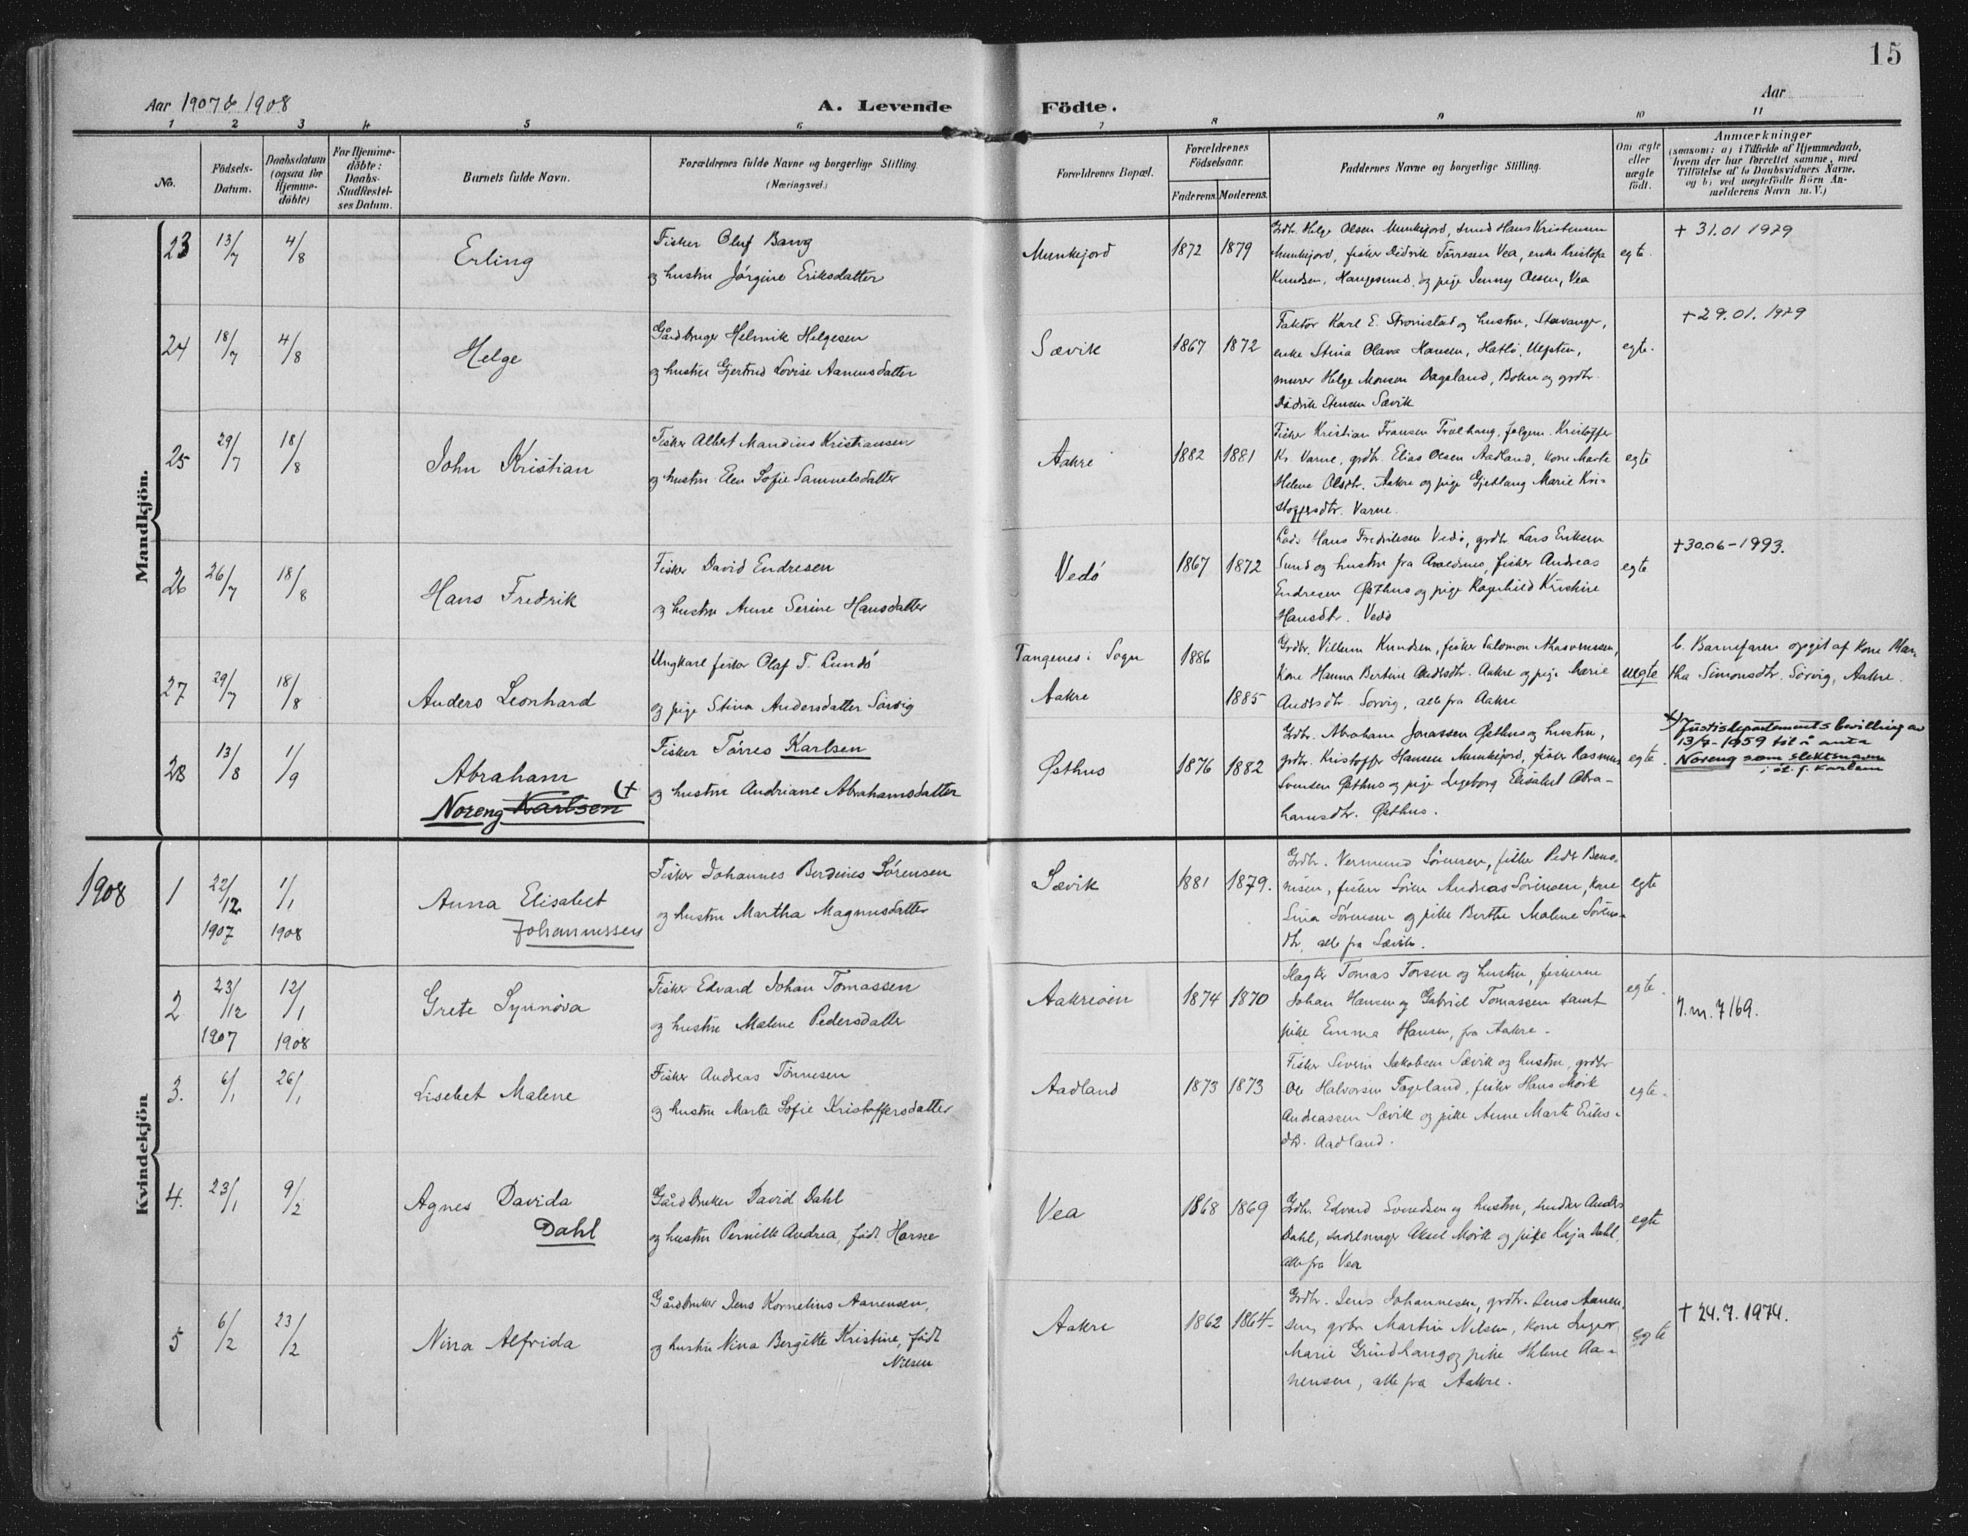 15
Aar 1907 & 1908
A. Levende Födte.
Aar
1 2 3 4 5 6 7 8 9 10 11
No.
Födsels-Datum.
Daabsdatum (ogsaa for Hjemme-döbte)
For Hjemme-döbte: Daabs-Stadfæstel-ses Datum.
Barnets fulde Navn.
Forældrenes fulde Navne og borgerlige Stilling.
(Næringsvei.)
Forældrenes Bopæl.
Forældrenes Födselsaar.
Faderens. Moderens.
Faddernes Navne og borgerlige Stilling.
Om ægte eller uægte födt.
Anmærkninger
(saasom: a) i Tilfælde af Hjemmedaab, hvem der har forrettet samme, med Tilföielse af to Daabsvidners Navne, og b) ved uægtefödte Börn An-melderens Navn m. V.)
Mandkjön.
23 13/7 4/8 Erling
Fisker Oluf Bang
og hustru Jörgine Eriksdatter
Munkejord 1872 1879
Grdbr. Helge Olsen Munkejord, smed Hans Kristensen
Munkejord, fisker Didrik Törresen Vea, enke Kristofa
Knudsen, Haugesund, og pige Jenny Olsen, Vea
egte.
+ 31.01 1979
24 18/7 4/8 Helge
Gårdbruger Helmik Helgesen
og hustru Gjertrud Lovise Aanensdatter
Sævik 1867 1872
Faktor Karl E. Stronstad og hustru, Stavanger,
enke Stina Olava Hansen, Hatlö,
murer Helge Monsen Dagsland, Bokn og grdbr.
Didrik Stensen Sævik
egte.
+ 29.01. 1979
25 29/7 18/8 John Kristian
Fisker Albert Mandius Kristiansen
og hustru Elen Sofie Samuelsdatter
Aakre 1882 1881
Fisker Kristian Fransen Trælhaug, Kristoffer
Kr. Varne, grdbr. Elias Olsen Aadland, kone Marte
Helene Olsdtr. Aakre og pige Gjetlaug Marie Kri-
stoffersdtr. Varne.
egte
26 26/7 18/8 Hans Fredrik
Fisker David Endresen
og hustru Anne Serine Hansdatter
Vedö 1867 1872
Lods Hans Fredriksen Vedö, grdbr Lars Eriksen
Sund og hustru fra Avaldsnes, fisker Andreas
Endresen Østhus og pige Ragnhild Kristine
Hansdtr. Vedö
egte
+30.06-1993.
27 29/7 18/8 Anders Leonhard
Ungkarl fisker Olaf T. Lundö
og pige Stina Andersdatter Sörvig
Tangenes i Sogn 1886
Aakre 1885
Grdbr. Villum Knudsen, fisker Salomon Rasmussen,
Kone Hanna Bertine Andrsdtr. Aakre og pige Marie
Andrsdtr. Sörvig, alle fra Aakre
uegte
b. Barnefaren opgit af kone Mar-
tha Simonsdtr. Sörvig, Aakre.
28 13/8 1/9 Abraham
Noreng Karlsen (+
Fisker Törres Karlsen
og hustru Andriane Abrahamsdatter
Østhus 1876 1882
Grdbr. Abraham Jonassen Østhus og hustru,
grdbr. Kristoffer Hansen Munkejord, fisker Rasmus
Svensen Østhus og pige Ingeborg Elisabet Abra-
hamsdtr. Østhus.
egte.
+) Justisdepartementets bevilling av
13/7-1959 til å anta
Noreng som slektsnavn
i st. f. Karlsen
Kvindekjön
1908
1 22/12 1907 1/1 1908 Anna Elisabet
Johannessen
Fisker Johannes Berdines Sörensen
og hustru Martha Magnusdatter
Sævik 1881 1879.
Grdbr. Vermund Sörensen, fisker Peder Ben-
nisen, fisker Sören Andreas Sörensen, kone
Lina Sörensen og pike Berthe Malene Sörens-
dtr. alle fra Sævik.
egte
2 23/12 1907 12/1 1908 Grete Synnöva
Fisker Edvard Johan Tomassen
og hustru Malene Pedersdatter
Aakreöen 1874 1870
Slagter Tomas Torsen og hustru, fiskerne
Johan Hansen og Gabriel Tomassen samt
pike Emma Hansen, fra Aakre.
egte.
4.m. 7/69.
3. 6/1 26/1 Lisebet Malene
Fisker Andreas Tönnesen
og hustru Marta Sofie Kristoffersdatter
Aadland 1873 1873
Fisker Severin Jakobsen Sævik og hustru, grdbr
Ole Halvorsen Fagerland, fisker Hans Mörk
Andreassen Sævik og pike Anne Marte Eriks-
dtr. Aadland.
egte.
4. 23/1 9/2 Agnes Davida
Dahl
Gårdbruker David Dahl
og hustru Pernille Andrea, född Horne
Vea 1868 1869
Grdbr. Edvard Svendsen og hustru, snedker Anders
Dahl, Aksel Mörk og pike Kaja Dahl,
alle fra Vea
egte
5 6/2 23/2 Nina Alfrida
Gårdbruker Jens Kornelius Aanensen,
og hustru Nina Bergitte Kristine, född
Nilsen
Aakre 1862 1864-
Grdbr. Jens Johannesen, grdbr. Jens Aanen-
sen, grbr Martin Nilsen, kone Inger
Marie Grindhaug og pike Helene Aa-
nensen, alle fra Aakre.
egte
+ 24.7.1974.